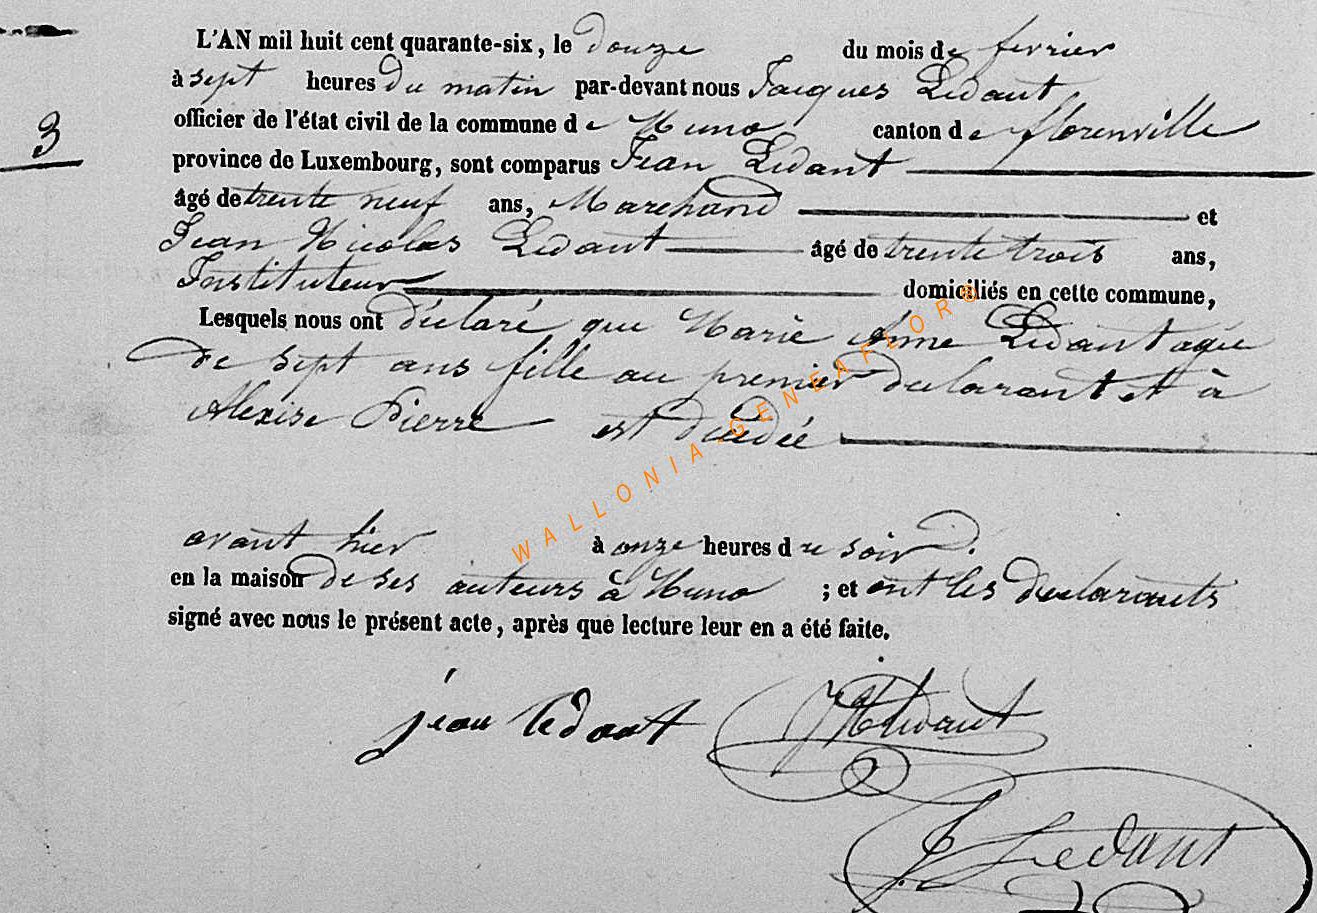 L'AN mil huit cent quarante-six, le douze du mois de fevrier
à sept heures Du matin par-devant nous Jacques Ledant
officier de l'état civil de la commune de Muno canton de florenville
3
province de Luxembourg, sont comparus Jean Ledant
âgé de trente neuf ans, Marchand et
Jean Nicolas Ledant âgé de trente trois ans,
Instituteur domiciliés en cette commune,
Lesquels nous ont déclaré que Marie Anne Ledant agée
de sept ans fille au premier declarant et à
Alexise Pierre est décédée
avant hier à onze heures du soir.
en la maison De ses auteurs à Muno ; et ont les declarants
signé avec nous le présent acte, après que lecture leur en a été faite.
jean ledant JNLedant
J Ledant
WALLONIA-GENEAFLOR®